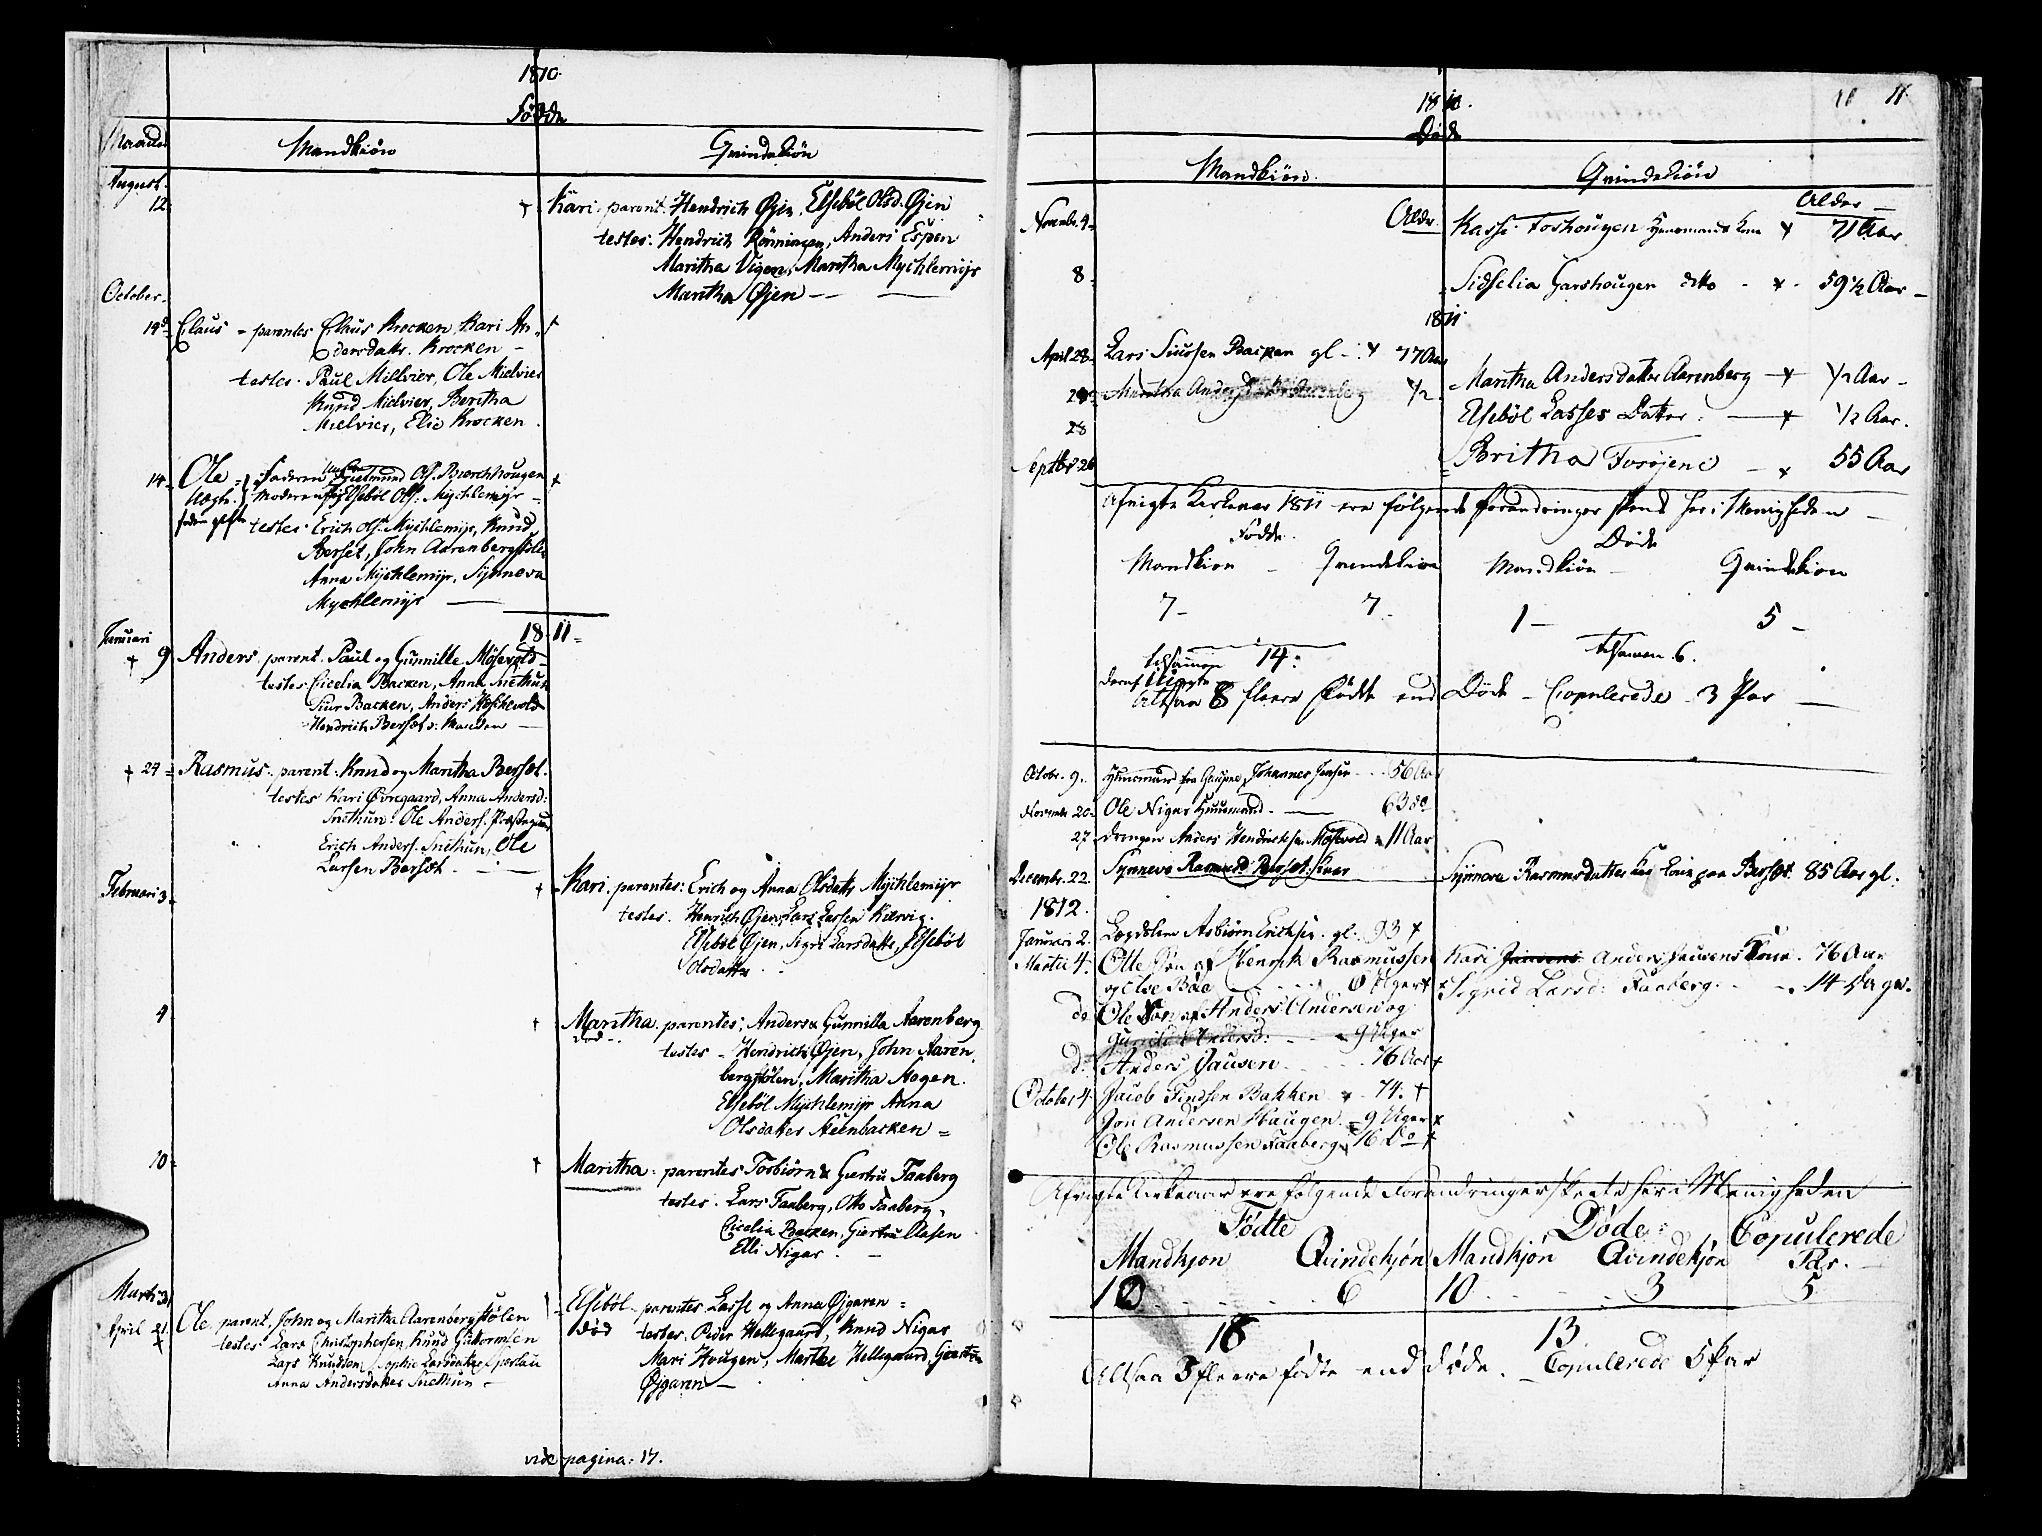 1810.
Fødde
Maaned
Mandkiøn
Qvindekiøn
August.
12.
+ Kari. parent. Hendrich Øjen, Elsebøl Olsd. Øjen
testes. Hendrich Rønningen, Anders Espen
Maritha Vigen, Maritha Mychlemijr
Maritha Øjen
October.
14d Claus - parentes Claus Krocken, Kari An-
dersdattr. Krocken
testes. Paul Mielvier, Ole Mielvier
Knud Mielvier, Beritha
Mielvier, Elie Krocken.
14 Ole - Faderen Gietmund Ols. Borchhougen
Uægte Moderen Elsebøl Ols: Mychlemijr
testes. Erich Ols. Mychlemijr, Knud
Berset, John Aarenbergstølen
Anna Mychlemijr, Synneva
Mychlemijr
1811.
Januari
+ 9 Anders. parent. Paul og Gunnille Møsevold
testes. Cicelia Backen, Anna Snethun
Siur Backen, Anders
Hendrich Berset
+ 24 Rasmus. parent. Knud og Maritha Berset.
testes Kari Øvregaard, Anna Andersd:
Snethun. Ole Anders.
Erich Anders. Snethun, Ole
Larsen Berset.
Februari 3
+ Kari. parentes: Erich og Anna Olsdatr Mychlemijr
testes. Henrich Øjen, Lars Larsen Kiervig.
Elsebøl Øjen, Sigri Larsdattr, Elsebøl
Olsdatter.
4 + Maritha. parentes: Anders & Gunnilla Aarenberg
død
testes - Hendrich Øjen, John Aaren
bergstølen, Maritha Hogen.
Elsebøl Mychlemijr Anna
Olsdatter Steenbacken
10 + Maritha. parentes Torbiørn & Giertru Faaberg
testes. Lars Faaberg, Otto Faaberg,
Cicelia Backen, Giertru Aasen
Elli Nigar.
Marti 31
Elsebøl parentes Lasse og Anna Øjgaren
død testes. Peder Hellegaard, Knud Nigar
Mari Hougen, Marthe Hellegaard, Giertru
Øjgaren
April 21. Ole. parent. John og Maritha Aarenbergstølen
testes Lars Christophersen, Knud Guttormsen
Lars Knudsen, Sophie Larsdatter
Anna Andersdatter Snethun
vide pagina: 17.
11
1810.
Døde
Mandkiøn.
Qvindekiøn
Novembr. 4. Alder.
Alder
Kassi Foshougen Huusmands Kone + 71 Aar
8. Sidselia Garshougen dito + 59 1/2 Aar
1811
April 28 Lars Siursen Backen gl + 77 Aar
Maritha Andersdatter Aarenberg 1/2
Maritha Andersdatter Aarenberg + 1/2 Aar
28 Elsebøl Lasses Datter. + 1/2 Aar.
Septbr 26 Britha Forøjene + 55 Aar
Afvigte Kirkeaar 1811 ere følgende forandringer skeed her i Menigheden
Fødde. Døde
Mandkiøn Qvindekiøn Mandkiøn Qvindekiøn
7 7 1 5
tilsammen 14. tilsammen 6.
Altsaa 8 fleere Fødde end Døde - Copulerede 3 Par
Octobr. 9. Huusmand fra Gaupne Johannes Jensen 56 Aar
Novembr 20 Ole Nigar Huusmand. 63 do
27 drengen Anders Hendrichsen Møsevold 11 Aar
Decembr. 22. Synneve Rasmusd Berset
Synneva Rasmusdatter paa Berset. 85 Aar gl.
1812.
Januari 2. Lægdslem Asbiørn Erichsen. gl. 93 +
Martii 4. Otte Søn af Henrik Rasmussen
og Else Bøe 8 Uger +
Kari Jensens Anders Pausens Kone. 76 Aar
Sigrid Larsd: Faaberg. 14 Dage.
do Ole Søn af Anders Andersen og
Gunild Andersd: 9 Uger
d. Anders Pausen 76 Aar +
October 4 Jacob Findsen Bakken 74. +
Jon Andersen Haugen 9 Uger +
Ole Rasmussen Faaberg 76 do +
Afvigte Kirkeaar ere følgende Forandringer skeete her i Menigheden
Fødte Døde: Copulerede
Mandkjøn Qvindekjøn Mandkjøn Qvindekjøn Par.
10 6 10 3 5
16 13
Altsaa 3 fleere fødte end døde. Copulerede 5 Par